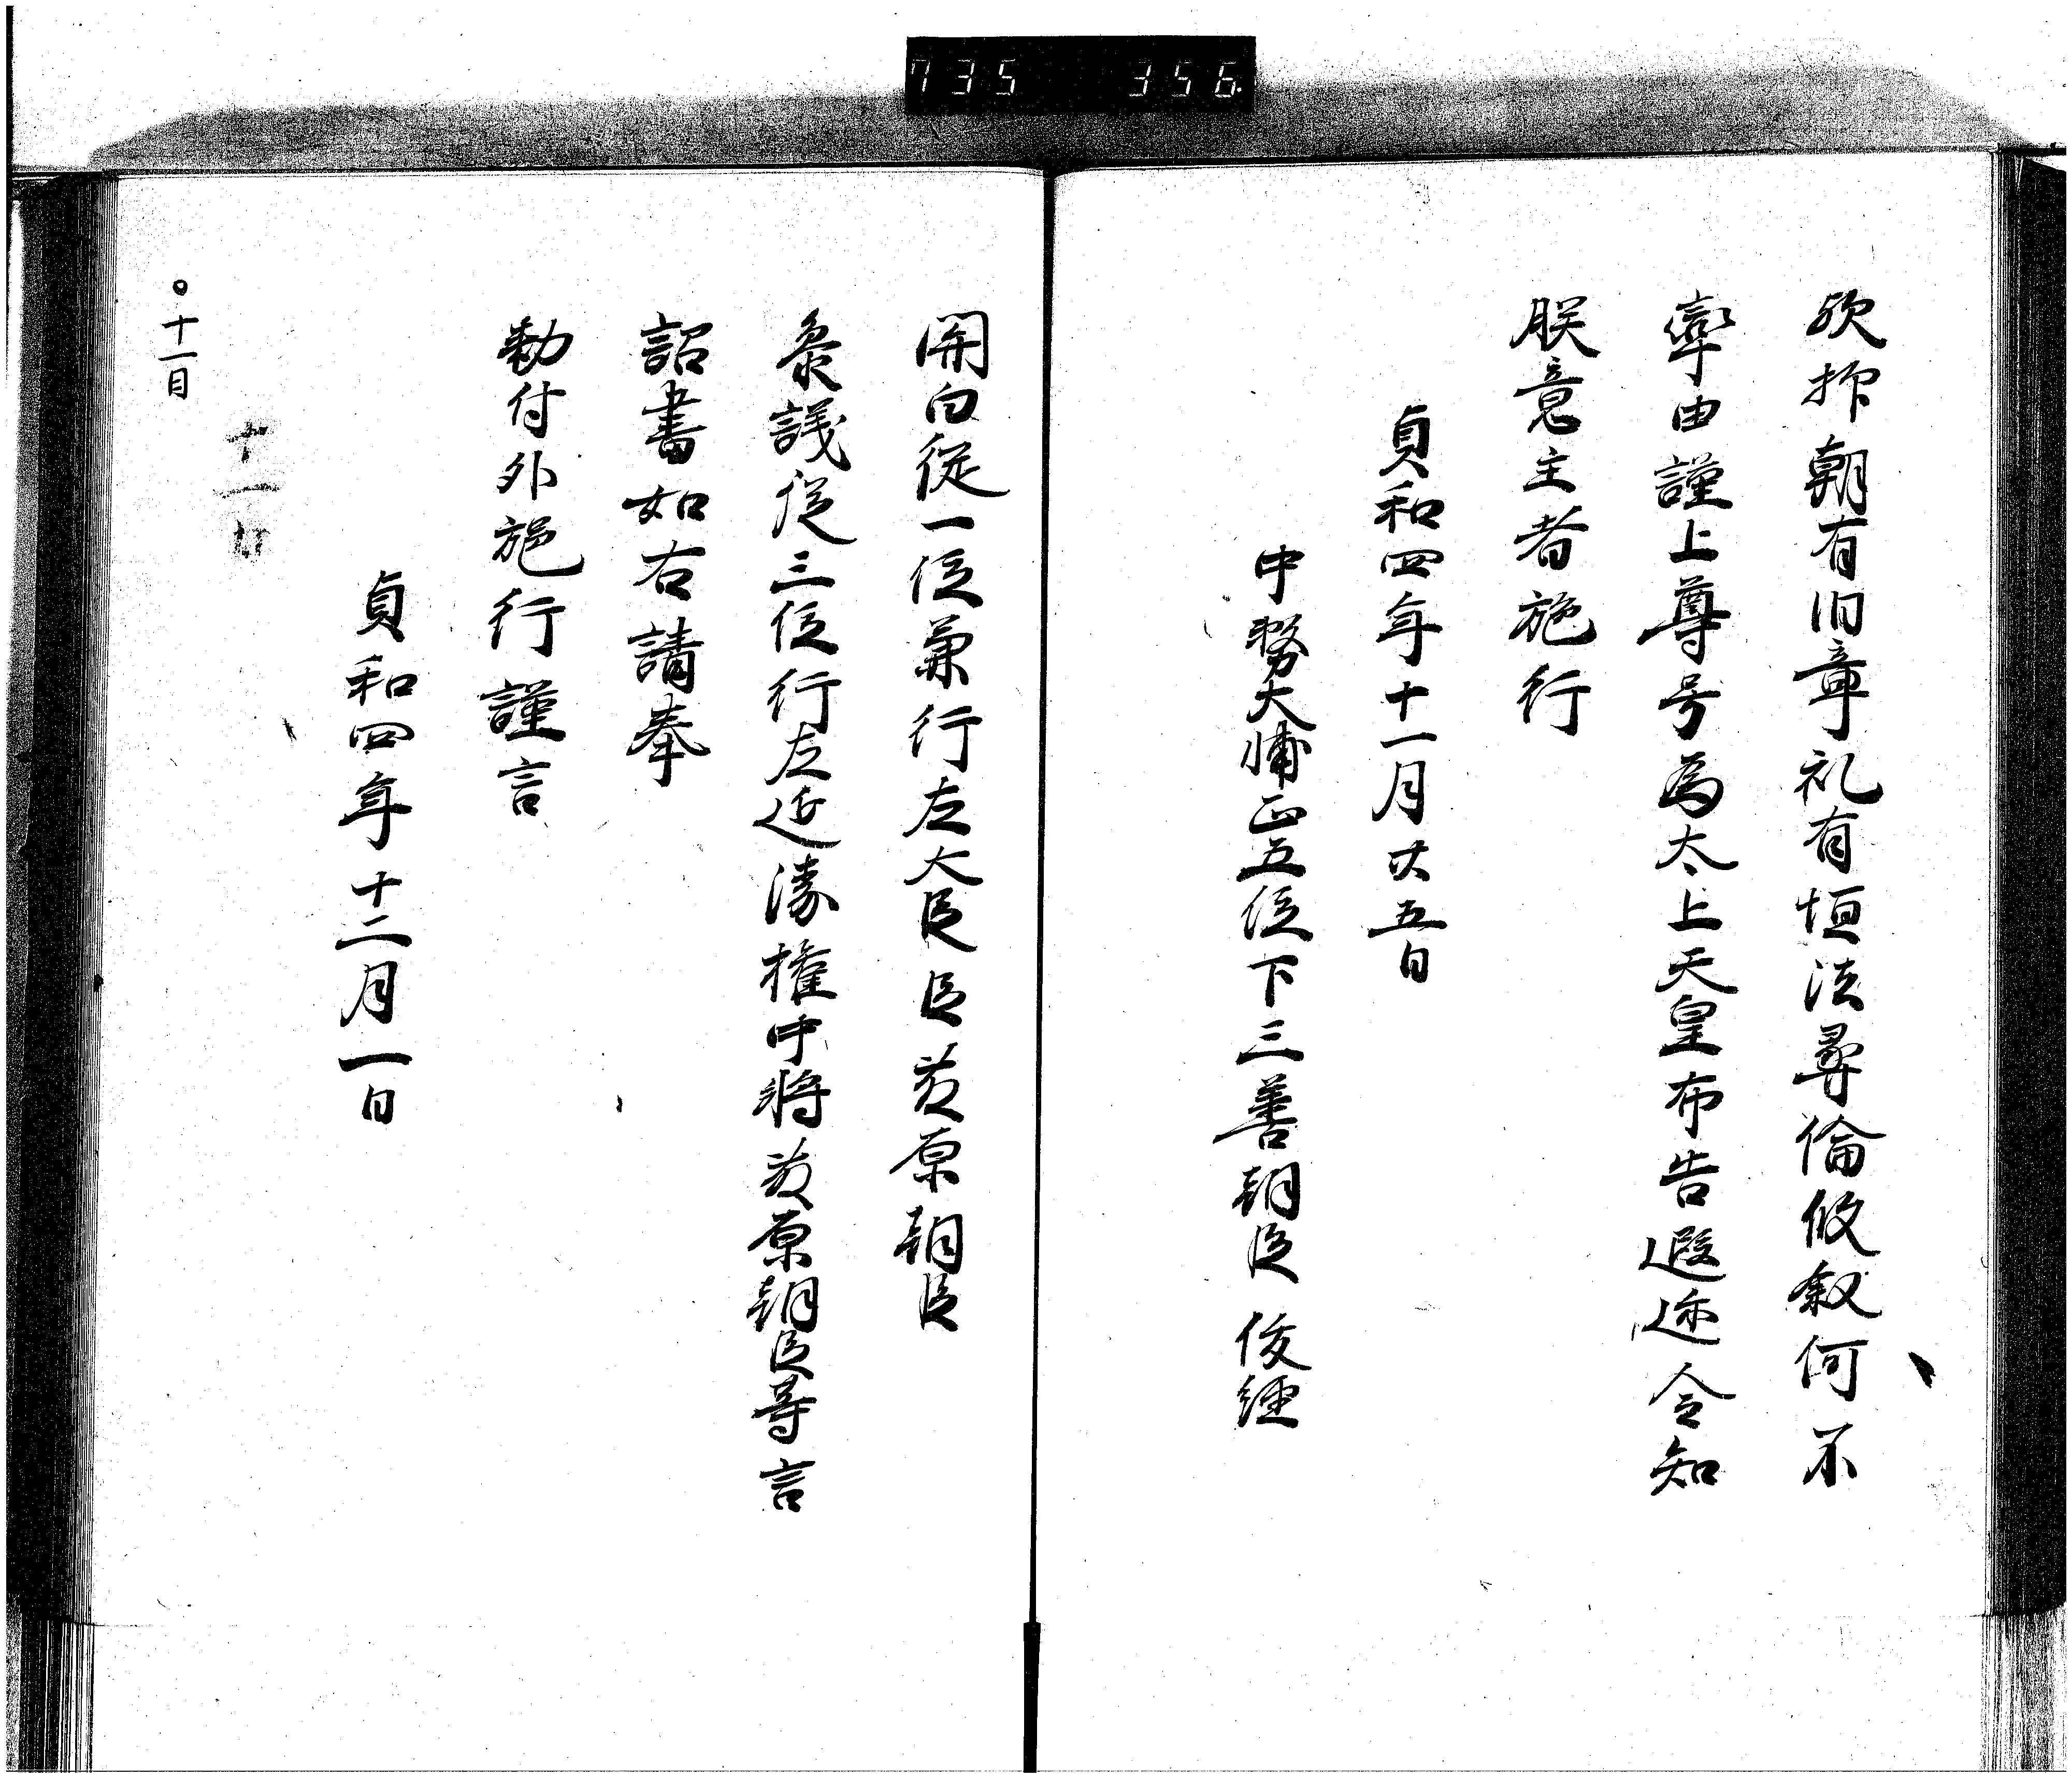 735 356
欤抑朝有旧章礼有恒法彛倫攸叙何不
率由謹上尊号為太上天皇布告遐迩令知
朕意主者施行
貞和四年十一月廿五日
中務大輔正五位下三善朝臣俊経
関白従一位兼行左大臣臣藤原朝臣
参議従三位行左近衛権中将藤原朝臣等言
詔書如右請奉
勅付外施行謹言
貞和四年十二月一日
十一
十一月